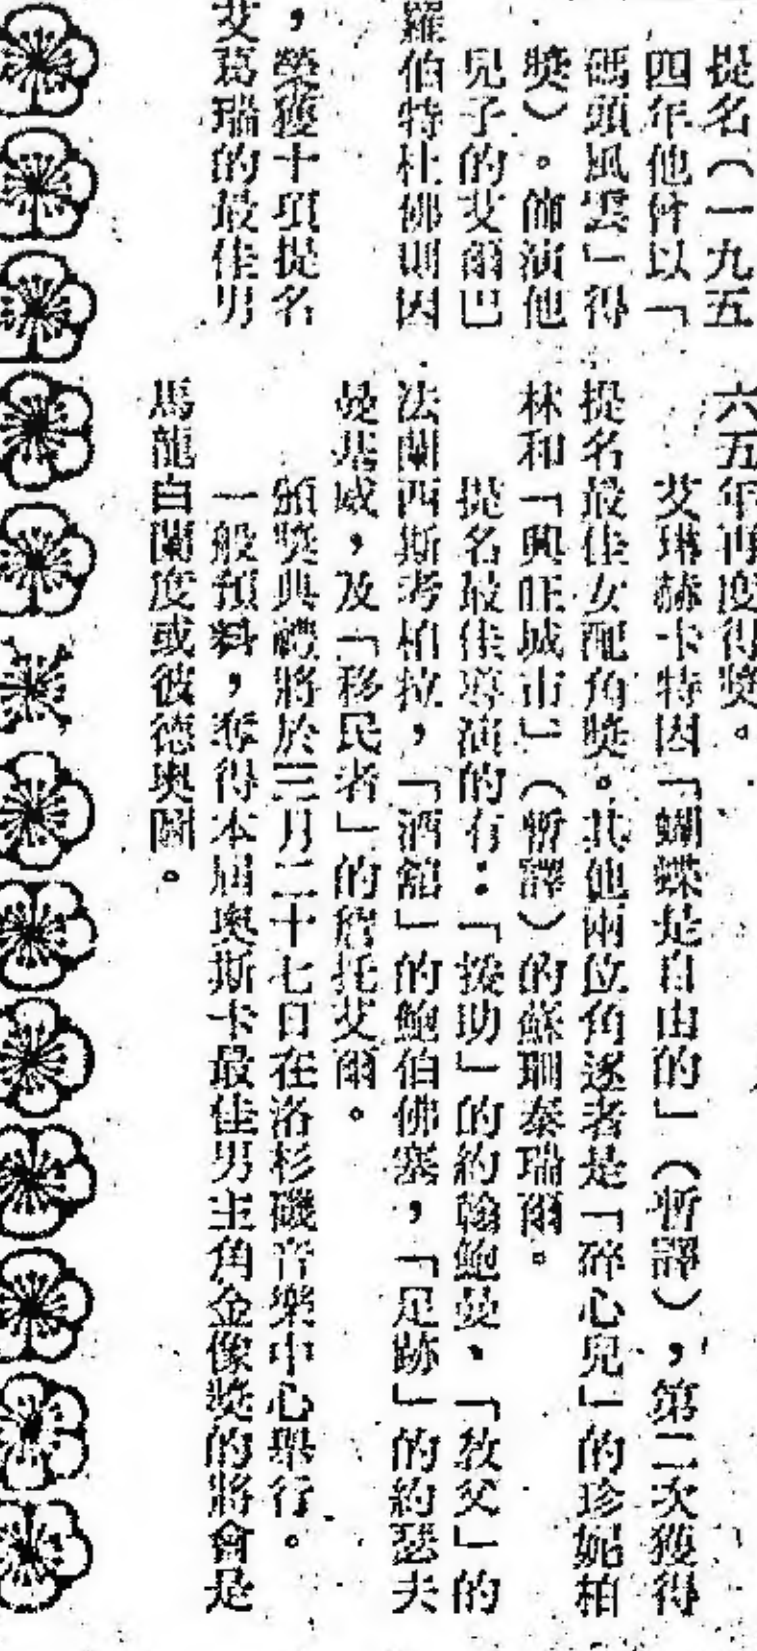 提名（一九五
四年他曾以「
碼頭風雲」得
獎）。飾演他
兒子的艾爾巴
羅伯特杜佛則因
，榮獲十項提名
艾葛瑞的最佳男
六五年再度得獎。
艾琳赫卡特因「蝴蝶是自由的」（暫譯），第二次獲得
提名最佳女配角獎。其他兩位角逐者是「碎心兒」的珍妮柏
林和「興旺城市」（暫譯）的蘇珊泰瑞爾。
提名最佳導演的有：「援助」的約翰鮑曼、「教父」的
法蘭西斯考柏拉，「酒館」的鮑伯佛塞，「足跡」的約瑟夫
曼基威，及「移民者」的詹托艾爾。
頒獎典禮將於三月二十七日在洛杉磯音樂中心舉行。
一般預料，奪得本屆奧斯卡最佳男主角金像獎的將會是
馬龍白蘭度或彼德奧圖。